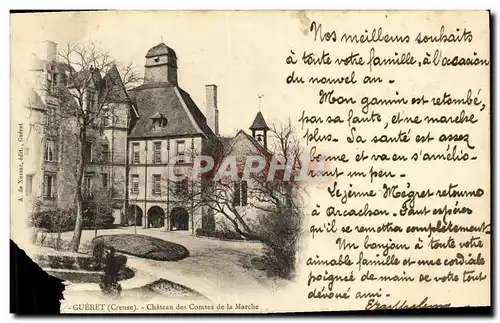 Nos meilleurs souhaits
à toute votre famille, à l'occasion
du nouvel an.
Mon gamin est retombé,
par sa faute, et ne marche
plus. Sa santé est assez
bonne et va en s'amélio-
rant un peu.
Le jeune Mégret retourne
à Arcachon. Faut espérer
qu'il se remettra complètement.
Mn bonjour à toute votre
aimable famille et une cordiale
poignée de main de votre tout
dévoué ami.
A. de Nussac, édit., Guéret
CPARAMA
- GUÉRET (Creuse). - Château des Comtes de la Marche